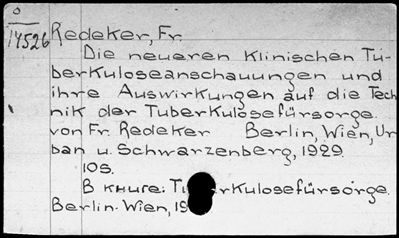 0
14526
Redeker, Fr.
Die neueren Klinischen Tu-
berkuloseanschauungen und
ihre Auswirkungen auf die Tech
nik der Tuberkulosefürsorge
von Fr. Redeker Berlin, Wien, Ur
ban u. Schwarzenberg, 1929.
10s.
В книге: Tu erkulosefürsorge.
Berlin-Wien, 19